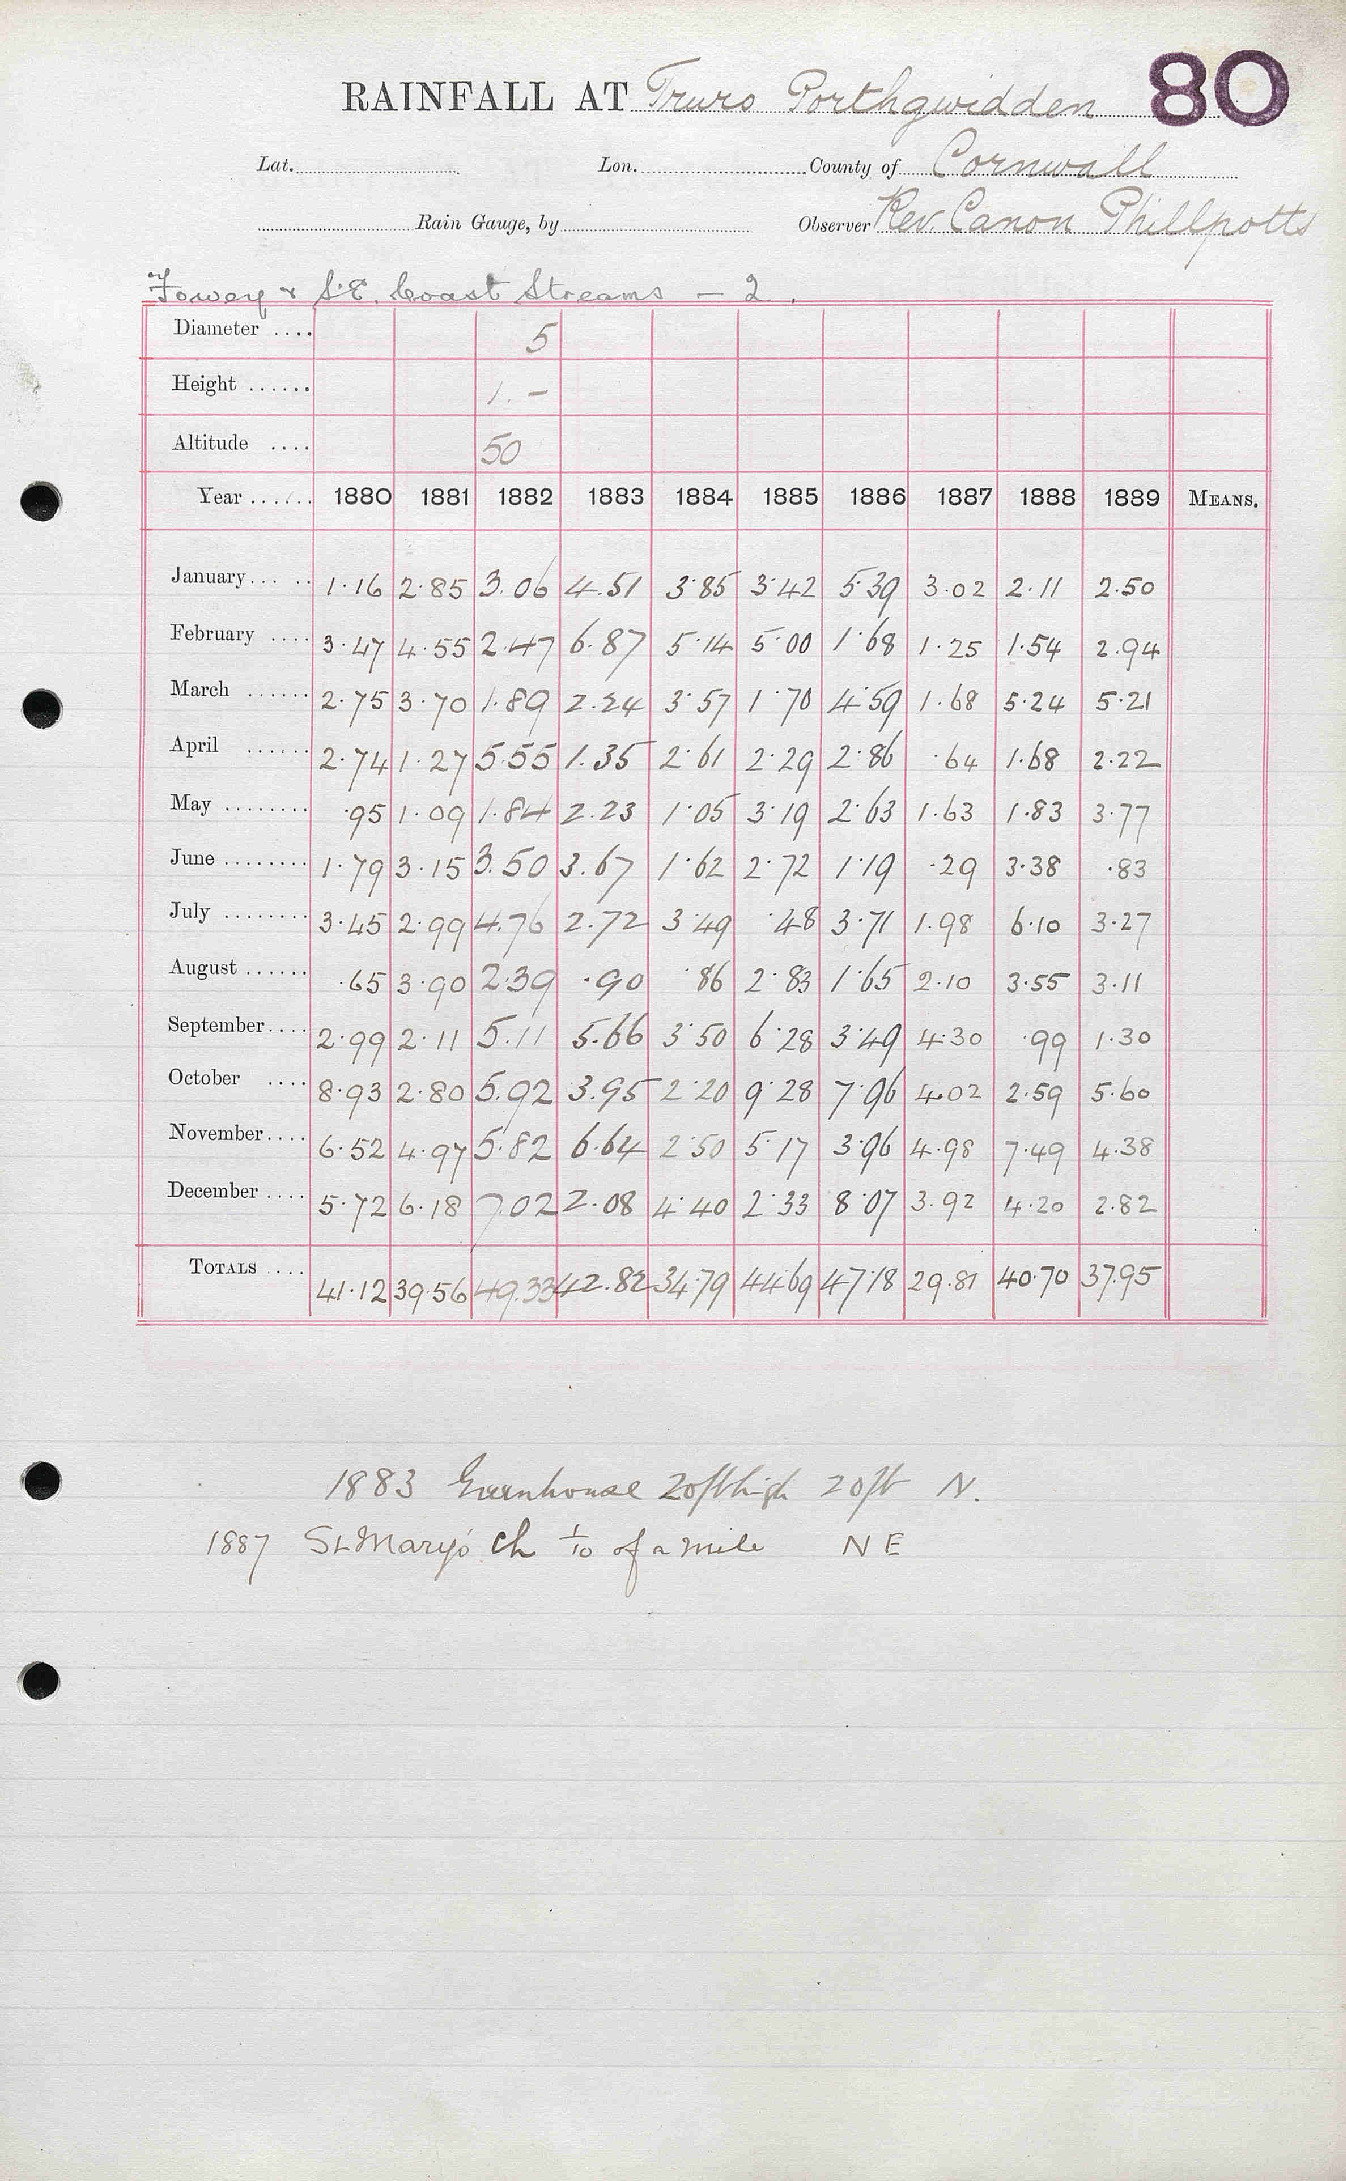 RAINFALL AT Truro Porthgwidden 80
Lat. Lon. County of Cornwall
Rain Gauge, by Observer Rev. Canon Phillpotts
Fowey & S.E. Coast Streams — 2.
Diameter .... 5
Height ...... 1. -
Altitude .... 50
Year ...... 1880 1881 1882 1883 1884 1885 1886 1887 1888 1889 MEANS.
January ... .. 1.16 2.85 3.06 4.51 3.85 3.42 5.39 3.02 2.11 2.50
February .... 3.47 4.55 2.47 6.87 5.14 5.00 1.68 1.25 1.54 2.94
March ...... 2.75 3.70 1.89 2.24 3.57 1.70 4.59 1.68 5.24 5.21
April ...... 2.74 1.27 5.55 1.35 2.61 2.29 2.86 .64 1.68 2.22
May ........ .95 1.09 1.84 2.23 1.05 3.19 2.63 1.63 1.83 3.77
June ........ 1.79 3.15 3.50 3.67 1.62 2.72 1.19 .29 3.38 .83
July ........ 3.45 2.99 4.76 2.72 3.49 .48 3.71 1.98 6.10 3.27
August ...... .65 3.90 2.39 .90 .86 2.83 1.65 2.10 3.55 3.11
September .... 2.99 2.11 5.11 5.66 3.50 6.28 3.49 4.30 .99 1.30
October .... 8.93 2.80 5.92 3.95 2.20 9.28 7.96 4.02 2.59 5.60
November .... 6.52 4.97 5.82 6.64 2.50 5.17 3.96 4.98 7.49 4.38
December .... 5.72 6.18 7.02 2.08 4.40 2.33 8.07 3.92 4.20 2.82
TOTALS .... 41.12 39.56 49.33 42.82 34.79 44.69 47.18 29.81 40.70 37.95
1883 Greenhouse 20ft high 20ft N.
1887 St Mary's Ch 1/10 of a mile NE